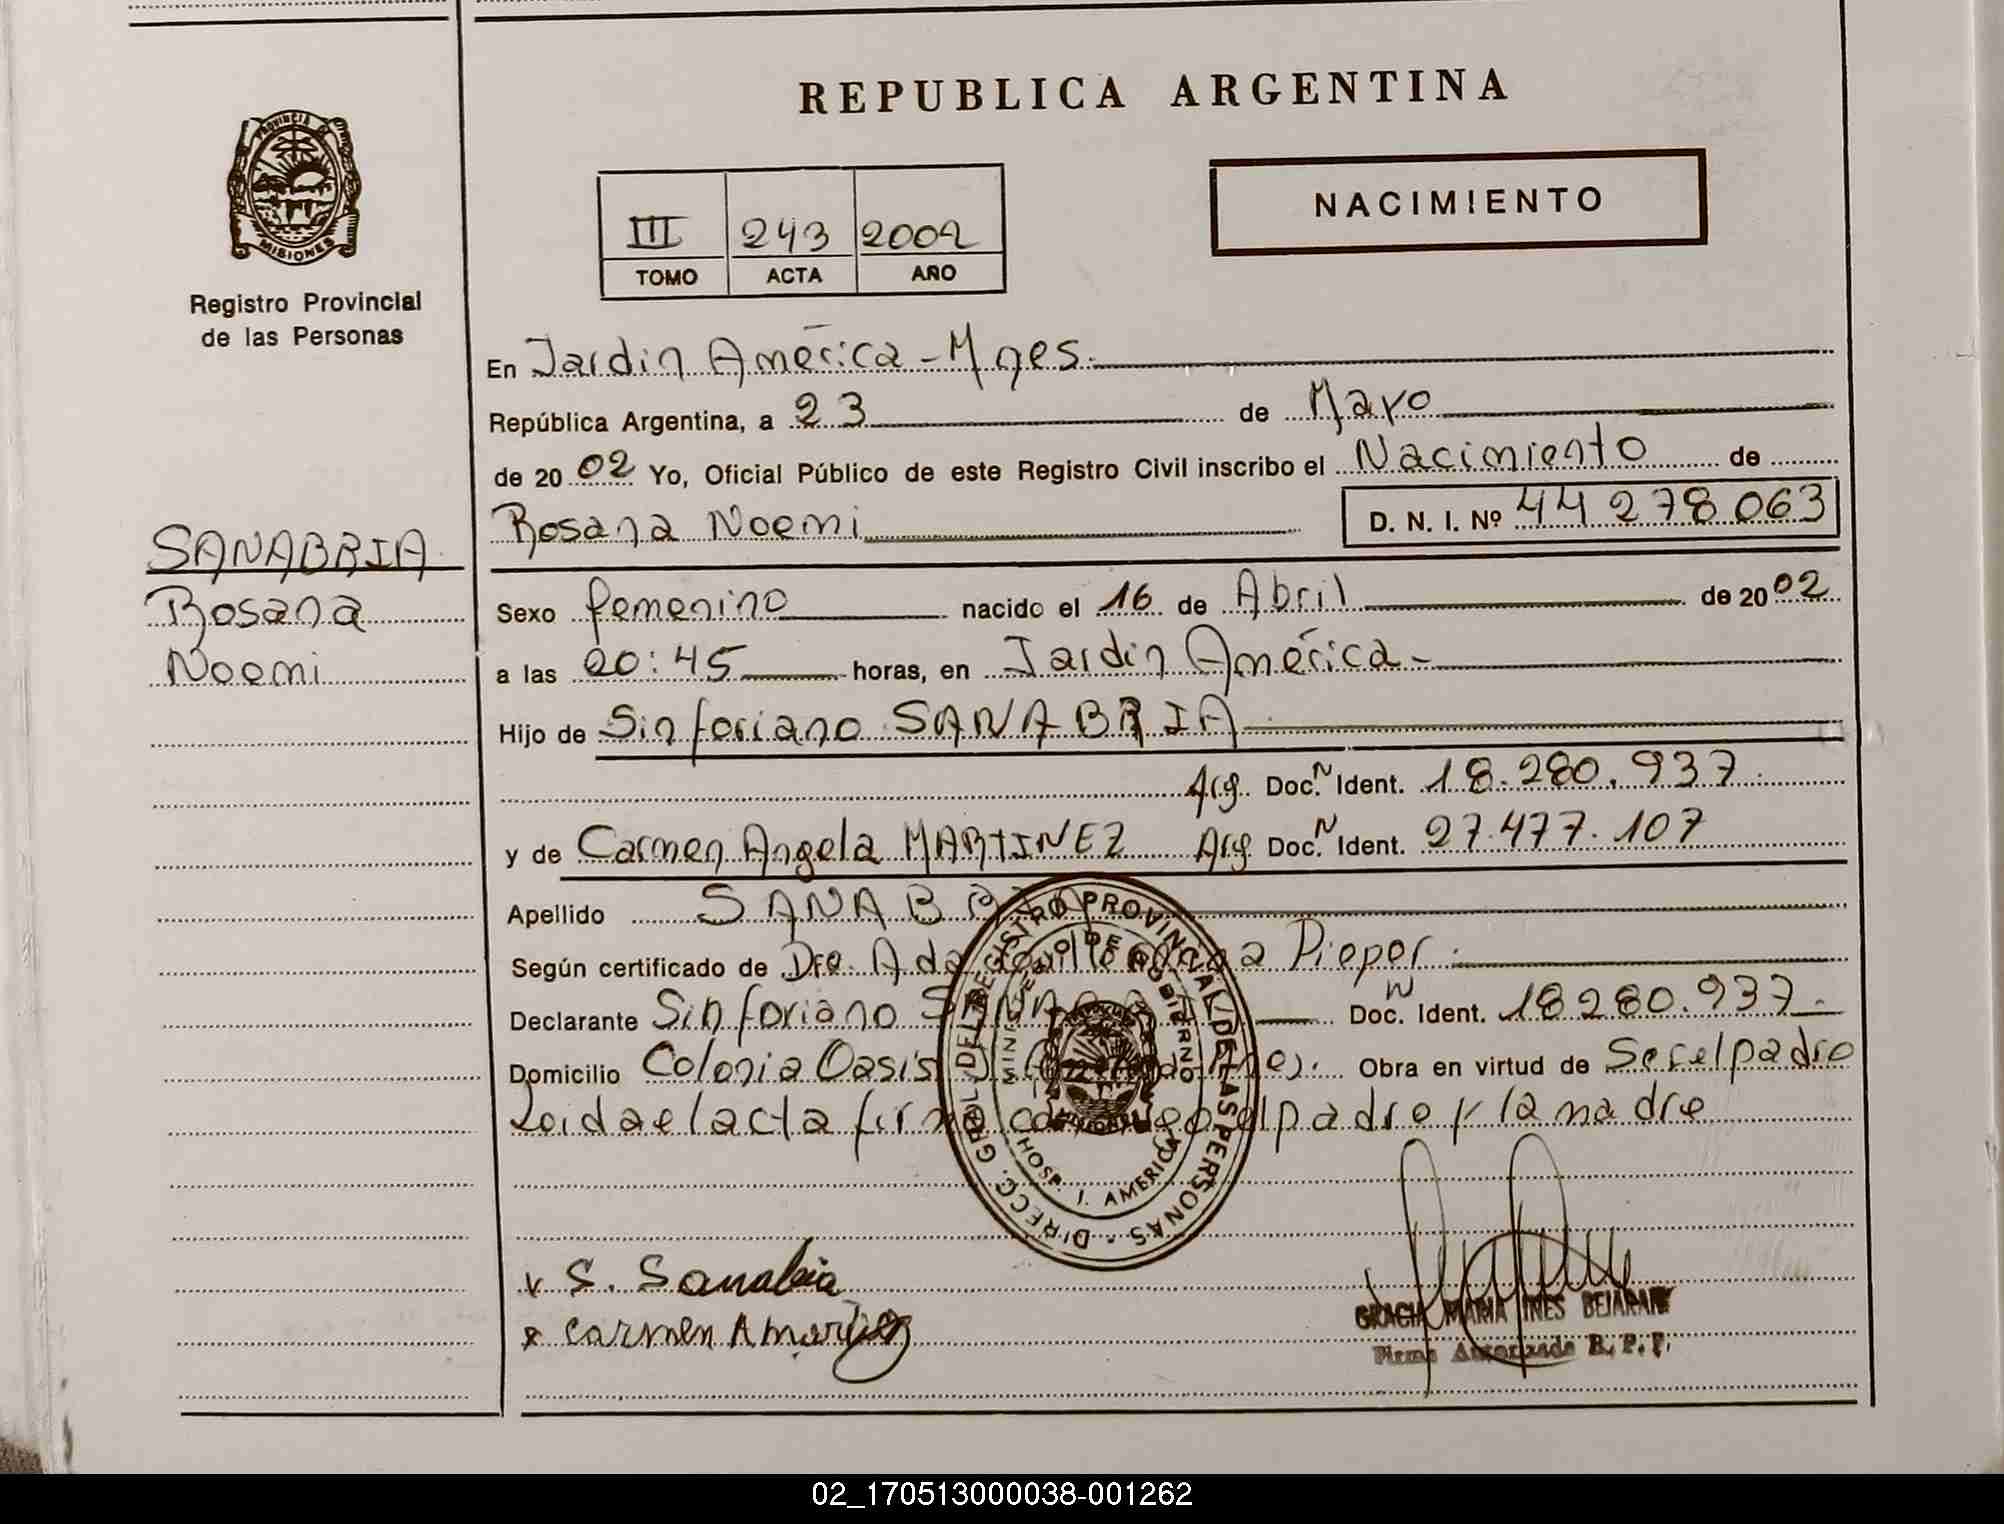 REPUBLICA ARGENTINA
PROVINCIA DE
MISIONES
Registro Provincial
de las Personas
NACIMIENTO
III 243 2002
TOMO ACTA AÑO
En Jardin América - Mnes.
República Argentina, a 23 de Mayo
de 20 02 Yo, Oficial Público de este Registro Civil inscribo el Nacimiento de
Rosana Noemi D. N. I. Nº 44 278 063
SANABRIA
Rosana
Noemi
Sexo femenino nacido el 16 de Abril de 20 02
a las 20:45 horas, en Jardin América -
Hijo de Sinforiano SANABRIA
Arg. Doc. N Ident. 18.280.937.
y de Carmen Angela MARTINEZ Arg Doc. N Ident. 27.477.107
Apellido SANABRIA
Según certificado de Dra. Ada Pieper.
Declarante Sinforiano Doc. N Ident. 18280.937.
Domicilio Colonia Oasis Obra en virtud de Ser el padre
Leida el acta el padre y la madre
DIRECC. GRAL. DEL REGISTRO PROVINCIAL DE LAS PERSONAS -
MINISTERIO DE GOBIERNO
HOSP. J. AMERICA
S. Sanabria
Carmen A martinez
GRACIA MARIA INES BEJARANO
Firma Autorizada R. P. P.
02_170513000038-001262